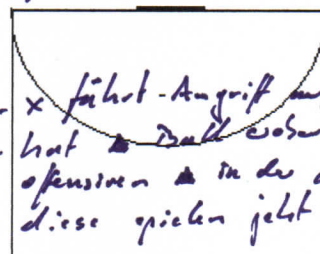 x führt - Angriff
hat ▲ Ball
offensiven ▲ in der
diese spielen jetzt